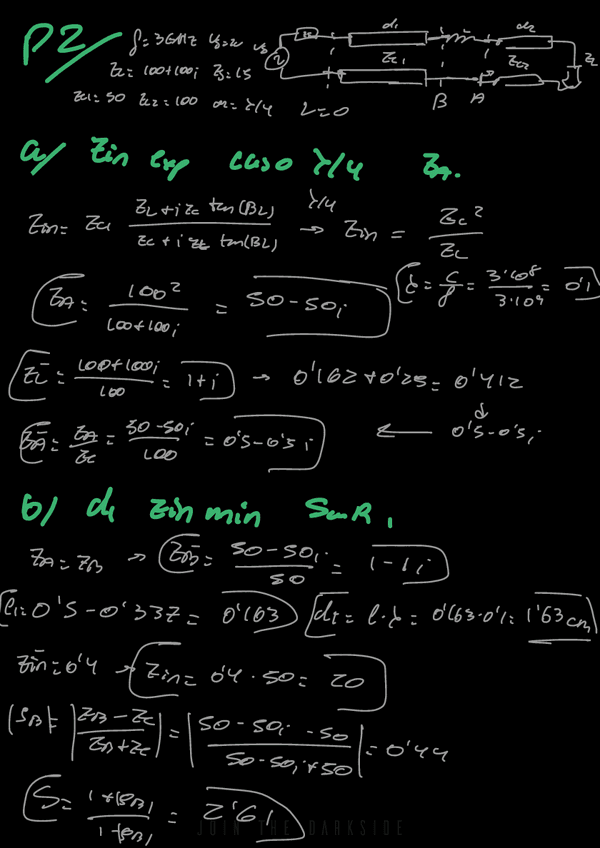 P2 f=3GHz
ZL=100+100i
Zc1=50 Zc2=100 d2=λ/4 L=0
d1 d2
Zc1 Zc2 ZL
B A
a/ Zin exp caso λ/4 ZA.
Zin= Zc (ZL+i Zc tan(BL))/(Zc+i ZL tan(BL)) →λ/4 Zin = Zc²/ZL
ZA= 100²/(100+100i) = 50-50i
λ=c/f=3·10⁸/3·10⁹=0'1
ZL=(100+100i)/100=1+i → 0'162+0'25=0'412
ZA=ZA/Zc=(50-50i)/100=0'5-0'5i ← 0'5-0'5i
b/ d1 Zin min S en R,
ZA=ZB → ZB=(50-50i)/50=1-1i
l1=0'5-0'337=0'163 d1=l·λ=0'163·0'1=1'63cm
Zin=0'4 → Zin=0'4·50=20
|ρB|=|(ZB-Zc)/(ZB+Zc)|=|(50-50i-50)/(50-50i+50)|=0'44
S=(1+|ρB|)/(1-|ρB|)=2'61
JOIN THE DARKSIDE